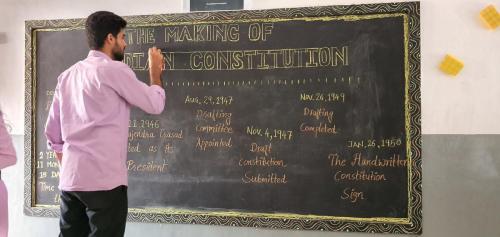 THE MAKING OF
DIAN CONSTITUTION
Aug, 29, 1947
Drafting
Committee
Appointed
Nov. 26, 1949
Drafting
Completed
1946
Rajendra Prasad
ted as its
President
Nov. 4, 1947
Draft
Constitution
Submitted
JAN, 26, 1950
The Handwritten
Constitution
Sign
2 YEA
11 MON
18 DA
Time